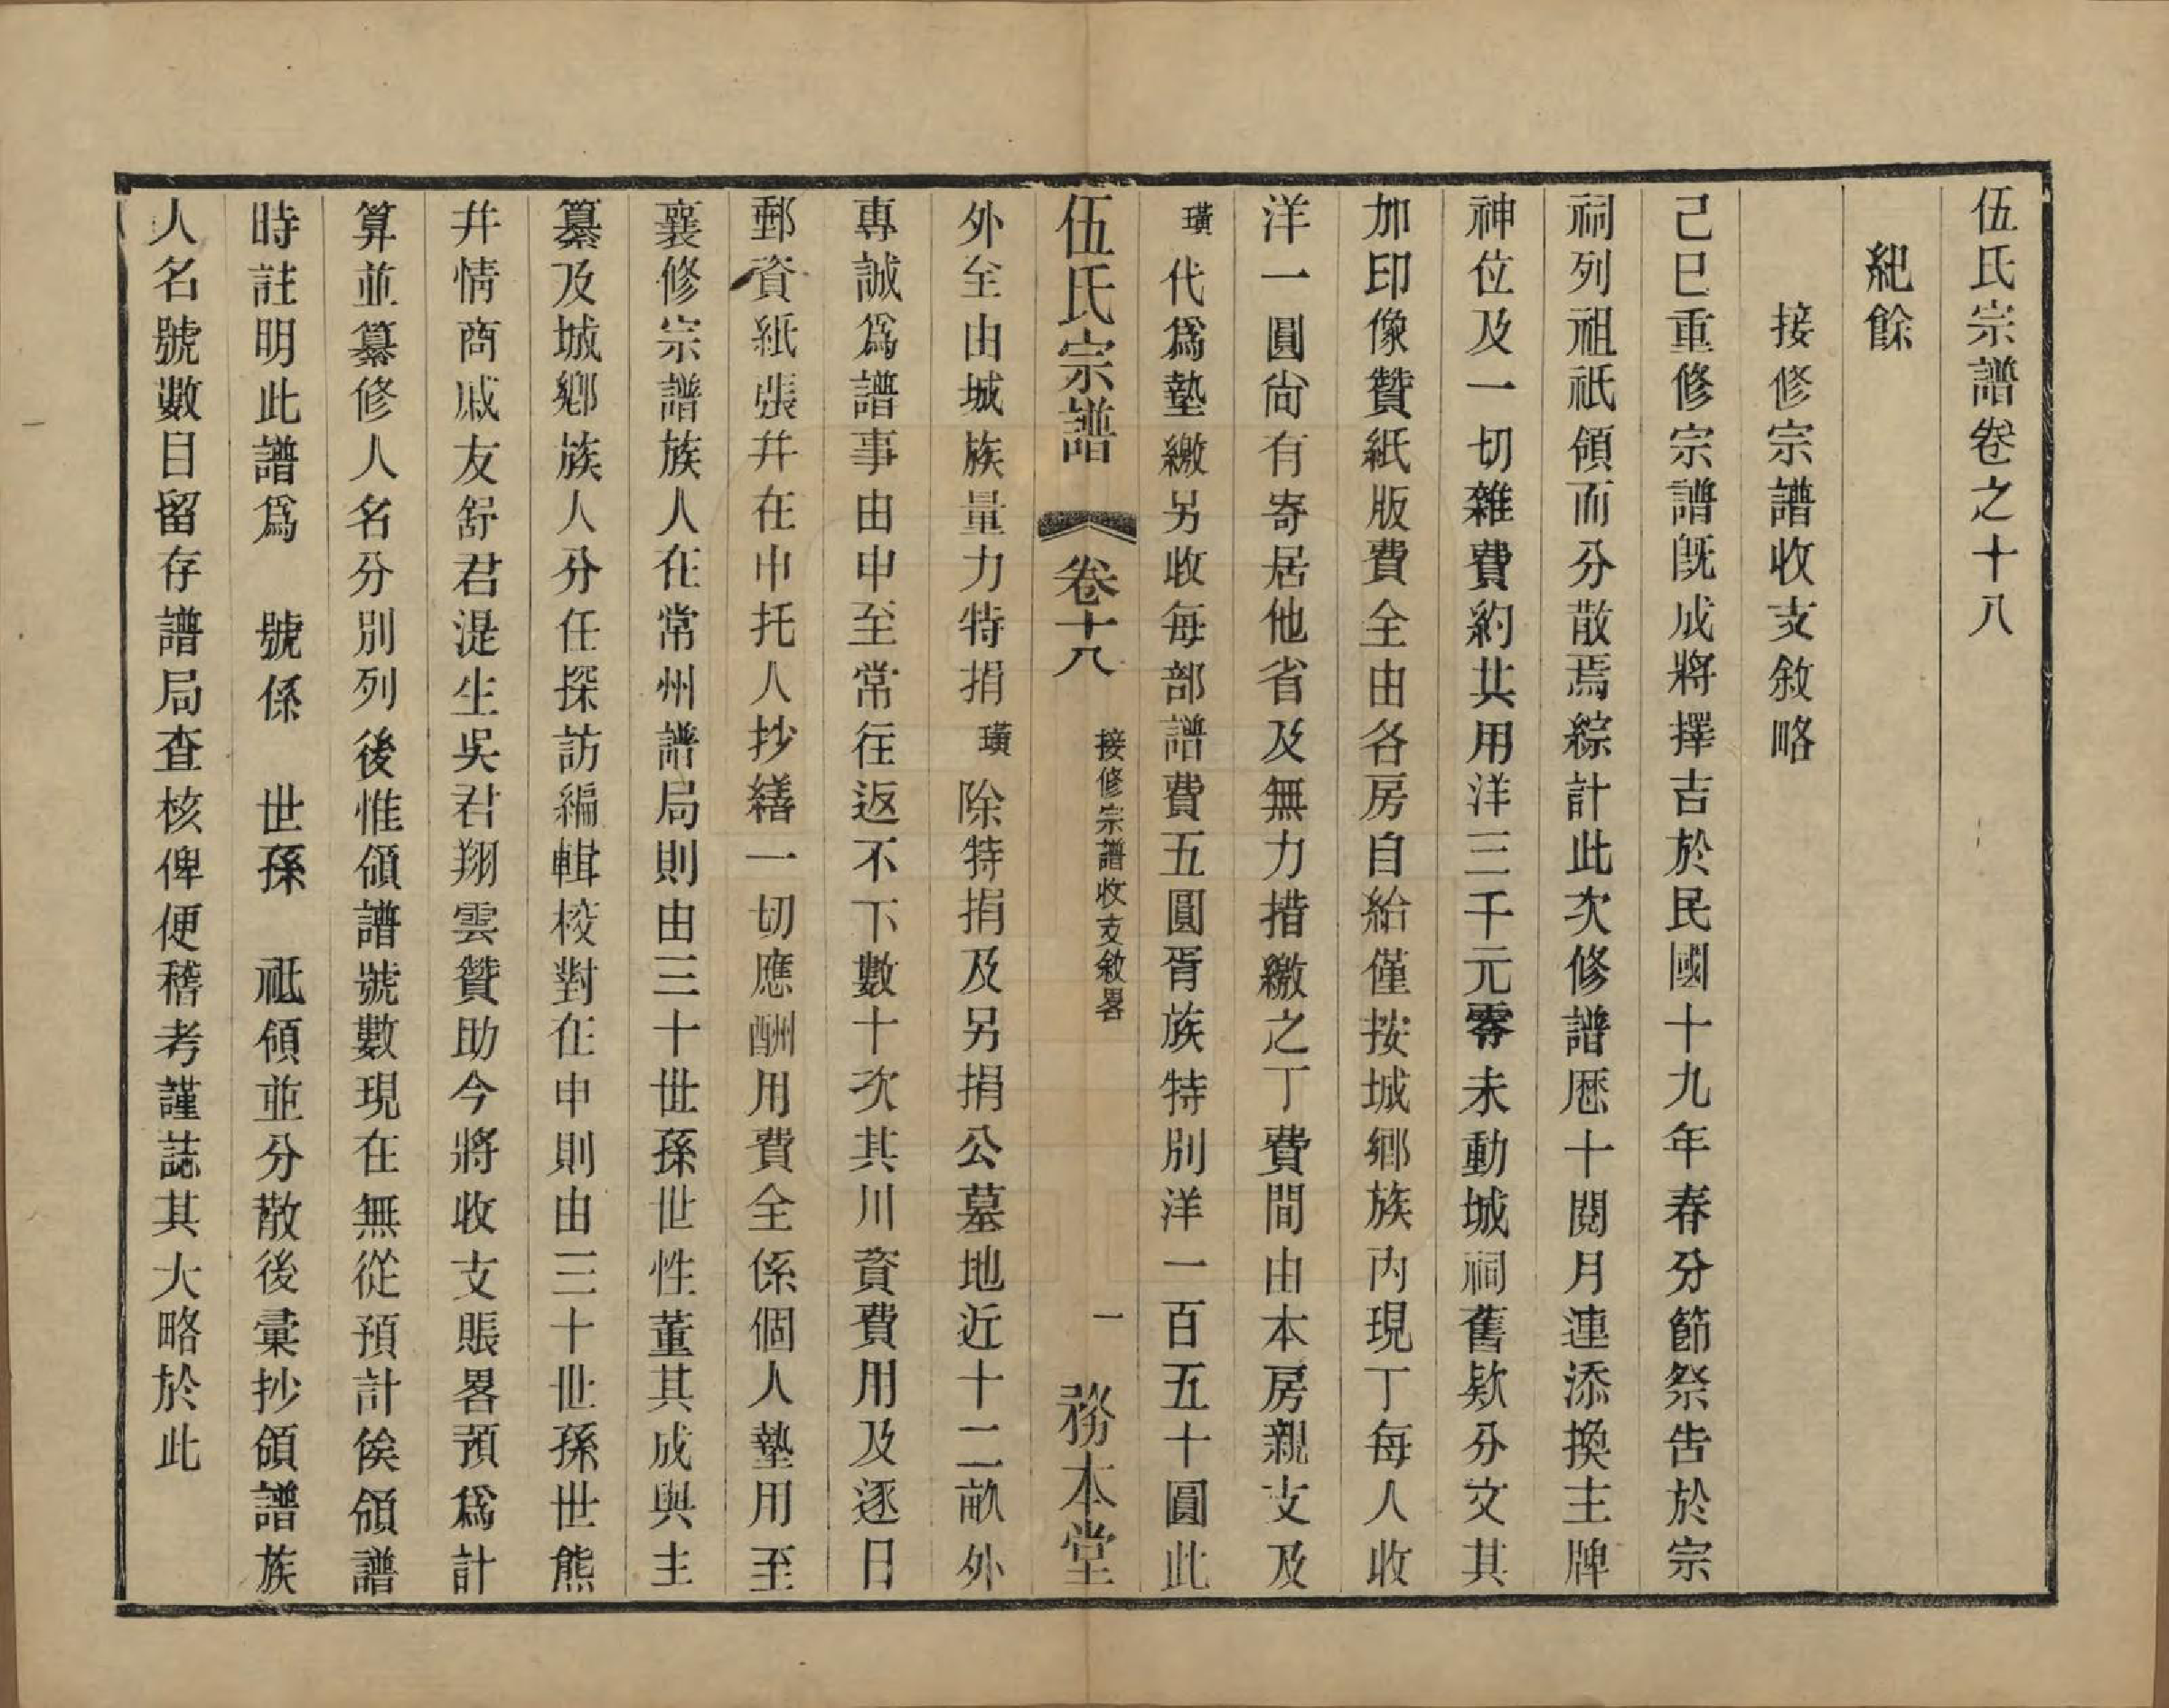 伍氏宗譜卷之十八
紀餘
接修宗譜收支敘略
己巳重修宗譜既成將擇吉於民國十九年春分節祭告於宗
祠列祖祇領而分散焉綜計此次修譜歷十閱月連添換主牌
神位及一切雜費約共用洋三千元零未動城祠舊欵分文其
加印像贊紙版費全由各房自給僅按城鄉族內現丁每人收
洋一圓尙有寄居他省及無力措繳之丁費間由本房親支及
璜代爲墊繳另收每部譜費五圓胥族特別洋一百五十圓此
伍氏宗譜 卷十八 接修宗譜收支敘畧 一 務本堂
外至由城族量力特捐璜除特捐及另捐公墓地近十二畝外
專誠爲譜事由申至常往返不下數十次其川資費用及逐日
郵資紙張幷在申托人抄繕一切應酬用費全係個人墊用至
襄修宗譜族人在常州譜局則由三十世孫世性董其成與主
纂及城鄉族人分任探訪編輯校對在申則由三十世孫世熊
幷情商戚友舒君湜生吳君翔雲贊助今將收支賬畧預爲計
算並纂修人名分別列後惟領譜號數現在無從預計俟領譜
時註明此譜爲 號係 世孫 祗領並分散後彙抄領譜族
人名號數目留存譜局查核俾便稽考謹誌其大略於此